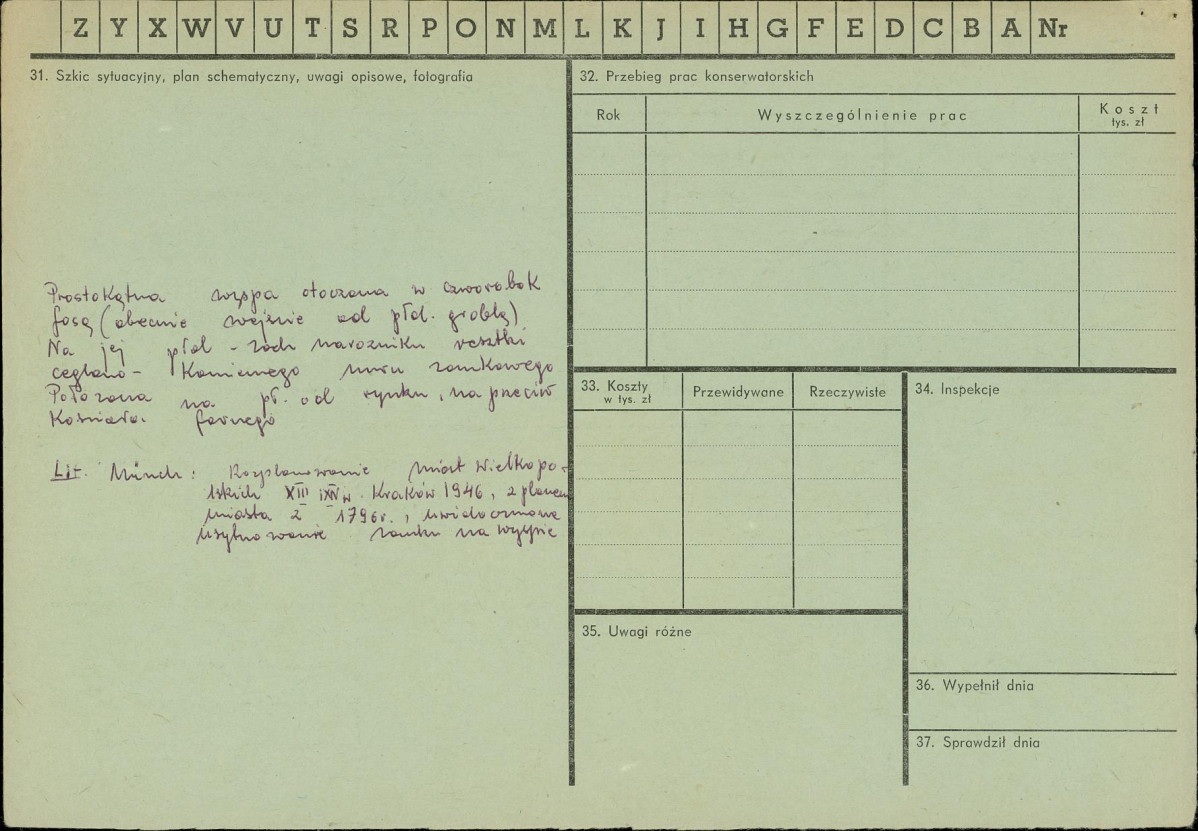 Z Y X W V U T S R P O N M L K J I H G F E D C B A Nr
31. Szkic sytuacyjny, plan schematyczny, uwagi opisowe, fotografia
Prostokątna wyspa otoczona w czworobok
fosą (obecnie wejście od płd. groblą)
Na jej płd - zach narożniku resztki
ceglano - Kamiennego muru zamkowego
Położona na pł. od rynku, na przeciw
Kościoła farnego
Lit. Münch: Rozplanowanie miast Wielkopo-
lskich XIII i XIV w Kraków 1946, z planem
miasta z 1796r., uwidocznione
usytuowanie zamku na wyspie
32. Przebieg prac konserwatorskich
Rok Wyszczególnienie prac Koszt
tys. zł
33. Koszty
w tys. zł
Przewidywane Rzeczywiste
34. Inspekcje
35. Uwagi różne
36. Wypełnił dnia
37. Sprawdził dnia